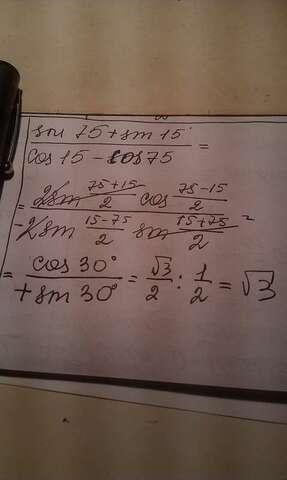 sin 75 + sin 15 / cos 15 - cos 75 =
= 2 sin 75+15 / 2 cos 75-15 / 2 / -2 sin 15-75 / 2 sin 15+75 / 2 =
= cos 30° / + sin 30° = √3 / 2 : 1 / 2 = √3